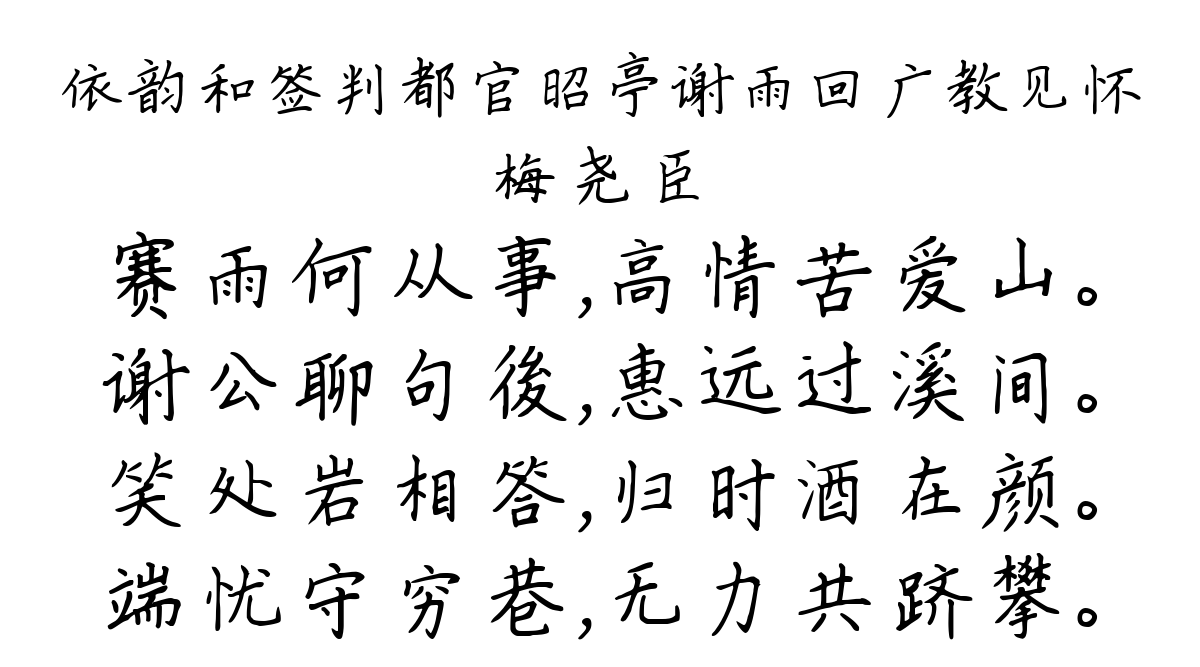 依韵和签判都官昭亭谢雨回广教见怀
梅尧臣
赛雨何从事,高情苦爱山。
谢公聊句後,惠远过溪间。
笑处岩相答,归时酒在颜。
端忧守穷巷,无力共跻攀。